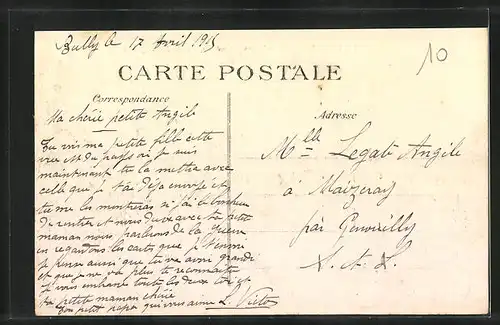 Bully le 17 Avril 1915
10
CARTE POSTALE
Correspondance
Adresse
Ma chérie petite Angile
Tu vois ma petite fille cette
vue est du pays où je suis
maintenant tu la mettra avec
celle que je t'ai déjà envoyé et
tu me les montreras si j'ai le bonheur
de rentrer et nous deux avec ta petite
maman nous parlerons de la guerre
en regardant les cartes que je t'envoie
je pense aussi que tu va avoir grandi
et que je ne va plus te reconnaitre
je vous embrasse toutes les deux toi et
ta petite maman chérie
Ton petit papa qui vous aime L. Victor
Mlle Legate Angile
à Maizeray
par
L. A. L.